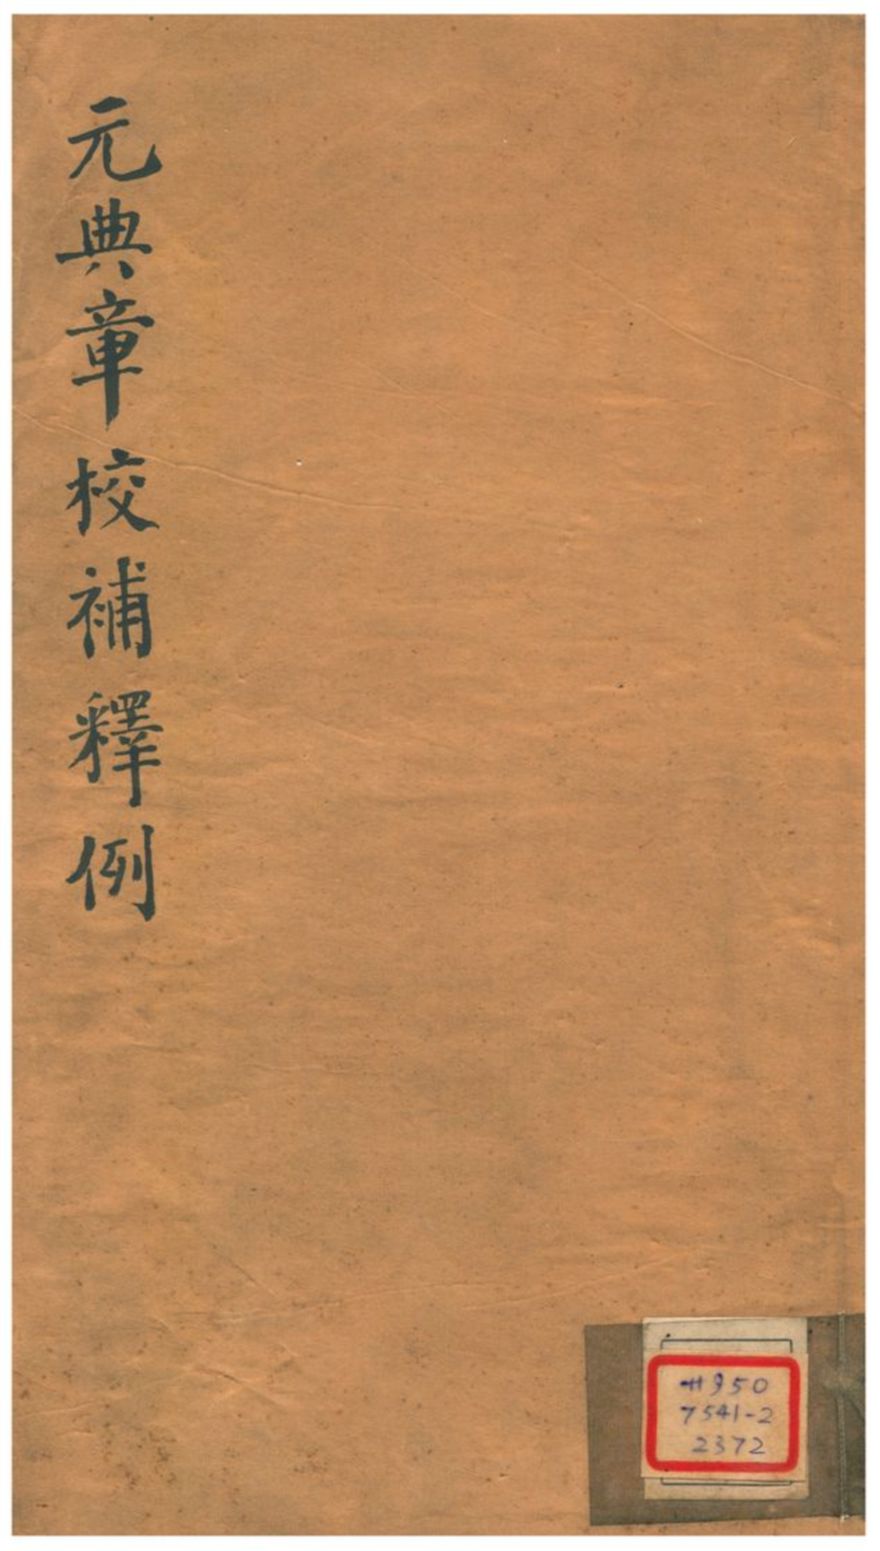 元典章校補釋例
7541-2
2372